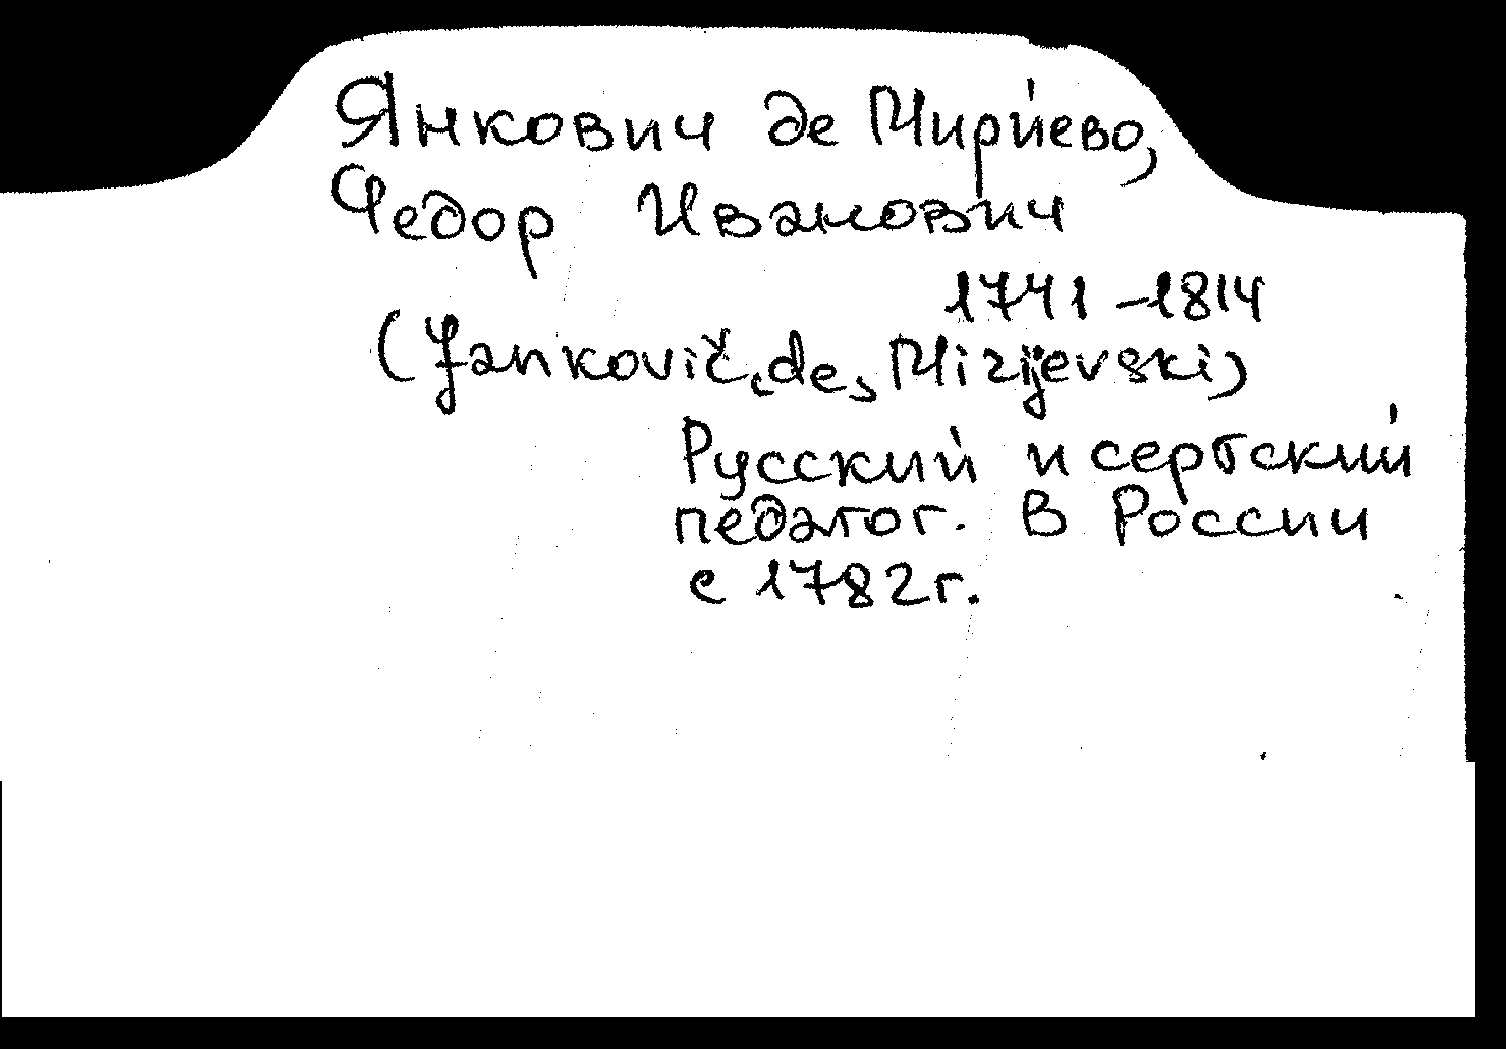 Янкович де Мирйево,
Федор Иванович
1741 – 1814
(Jankovič, de, Mirijevski)
Русский и сербский
педагог. В России
с 1782 г.